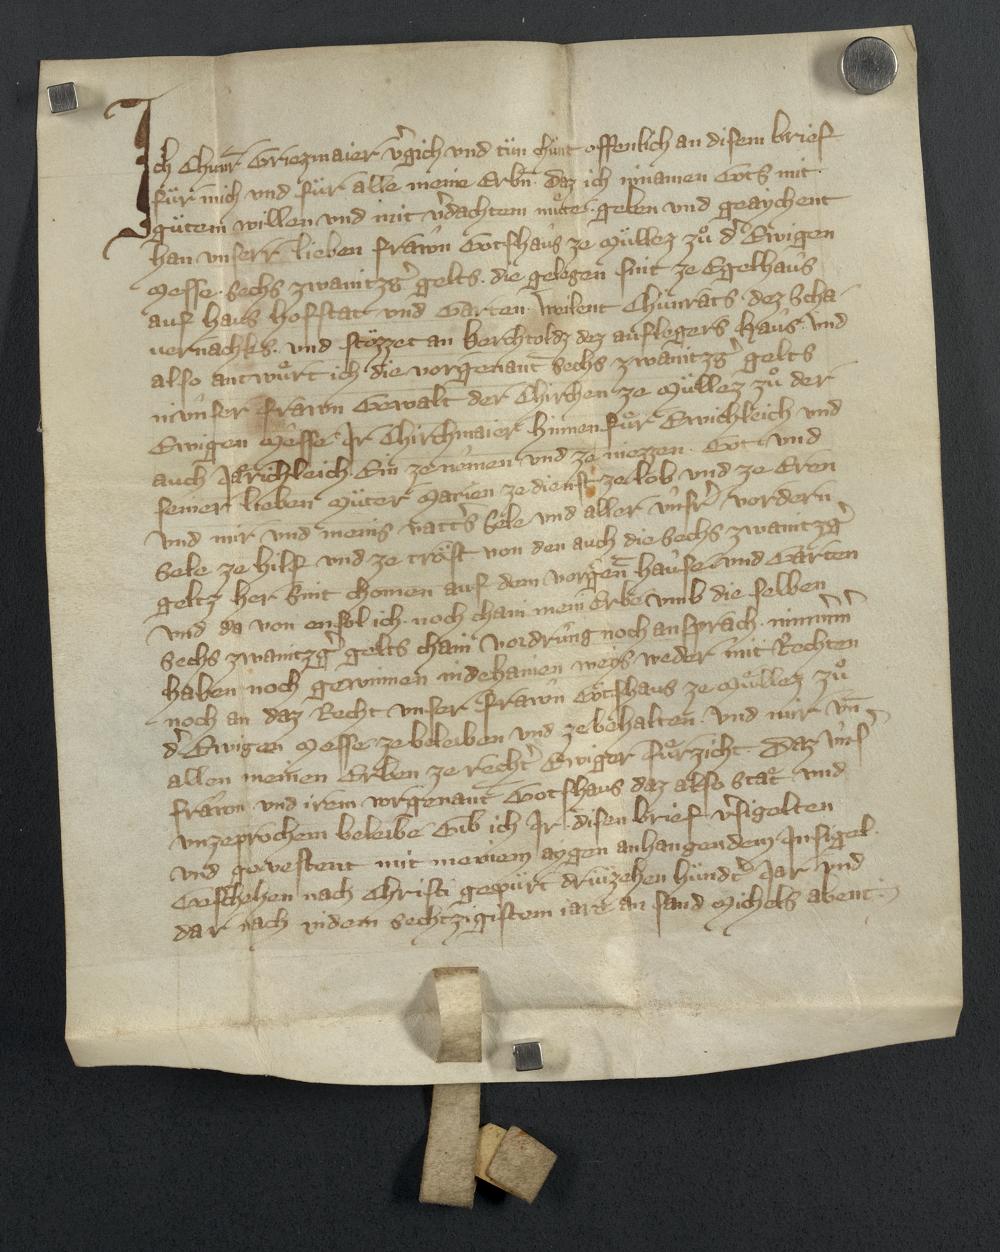 Ich Chunr Griezmaier v̉gich vnd tůn chunt offenlich an disem brief
für mich vnd für alle meine Erbn̄ · daz ich in namen Gots mit
gůtem willen vnd mit v̉dachtem můte · geben vnd geaychent
han vnserr lieben frawn̄ Gotshaus ze Müllez zů dˀ Ewigen
Messe · Sechs zwaintzgˀ gelts · die gelegen sint ze Egelhaus
auf haus hofstat vnd Garten · wilent Chunrats · dez Scha
uernachks · vnd stözzet an Berchtoldz dez auflegers Haus · vnd
also antwůrt ich die vorgenant Sechs zwaintzgˀ gelts
in vnser frawn Gewalt der Chirchen ze Müllez zů der
Ewigen Messe · Ir Chirchmaier hinnen für Ewichleich vnd
auch Järichleich Ein ze nemen vnd ze niezzen · Got vnd
seiner lieben Můter Marien ze dienst ze lob vnd ze Eren
vnd mir vnd meins vattˀs Sele vnd aller vnsrˀ vordern
Sele ze hilf vnd ze tröst von den auch die Sechs zwaintzgˀ
geltz her sint chomen auf dem vorgen̄ hause vnd Garten
vnd da von ensol ich · noch chain mein Erbe vmb die selben
Sechs zwaintzgˀ gelts chain vordrung noch ansprach · nimmˀm̄
haben noch gewinnen in dehainen weis weder mit Rechten
noch an daz Recht vnser frawn Gotshaus ze Müllez zů
dˀ Ewigen Messe ze beleiben vnd ze behalten · vnd mir vn̄
allen meinen Erben ze rechtˀ Ewiger fürzicht · Daz vnsˀ
frawn vnd irem vorgenant Gotshaus daz also stät vnd
vnzeprochem beleibe Gib ich Ir disen brief v̉sigelten
vnd gevestent mit meinem aygen anhangendem Insigel ·
Geschehen nach Christi gepürt drüzehen hundtˀ Jar vnd
dar nach in dem Sechtzigistem iare an sand Michels abent ·